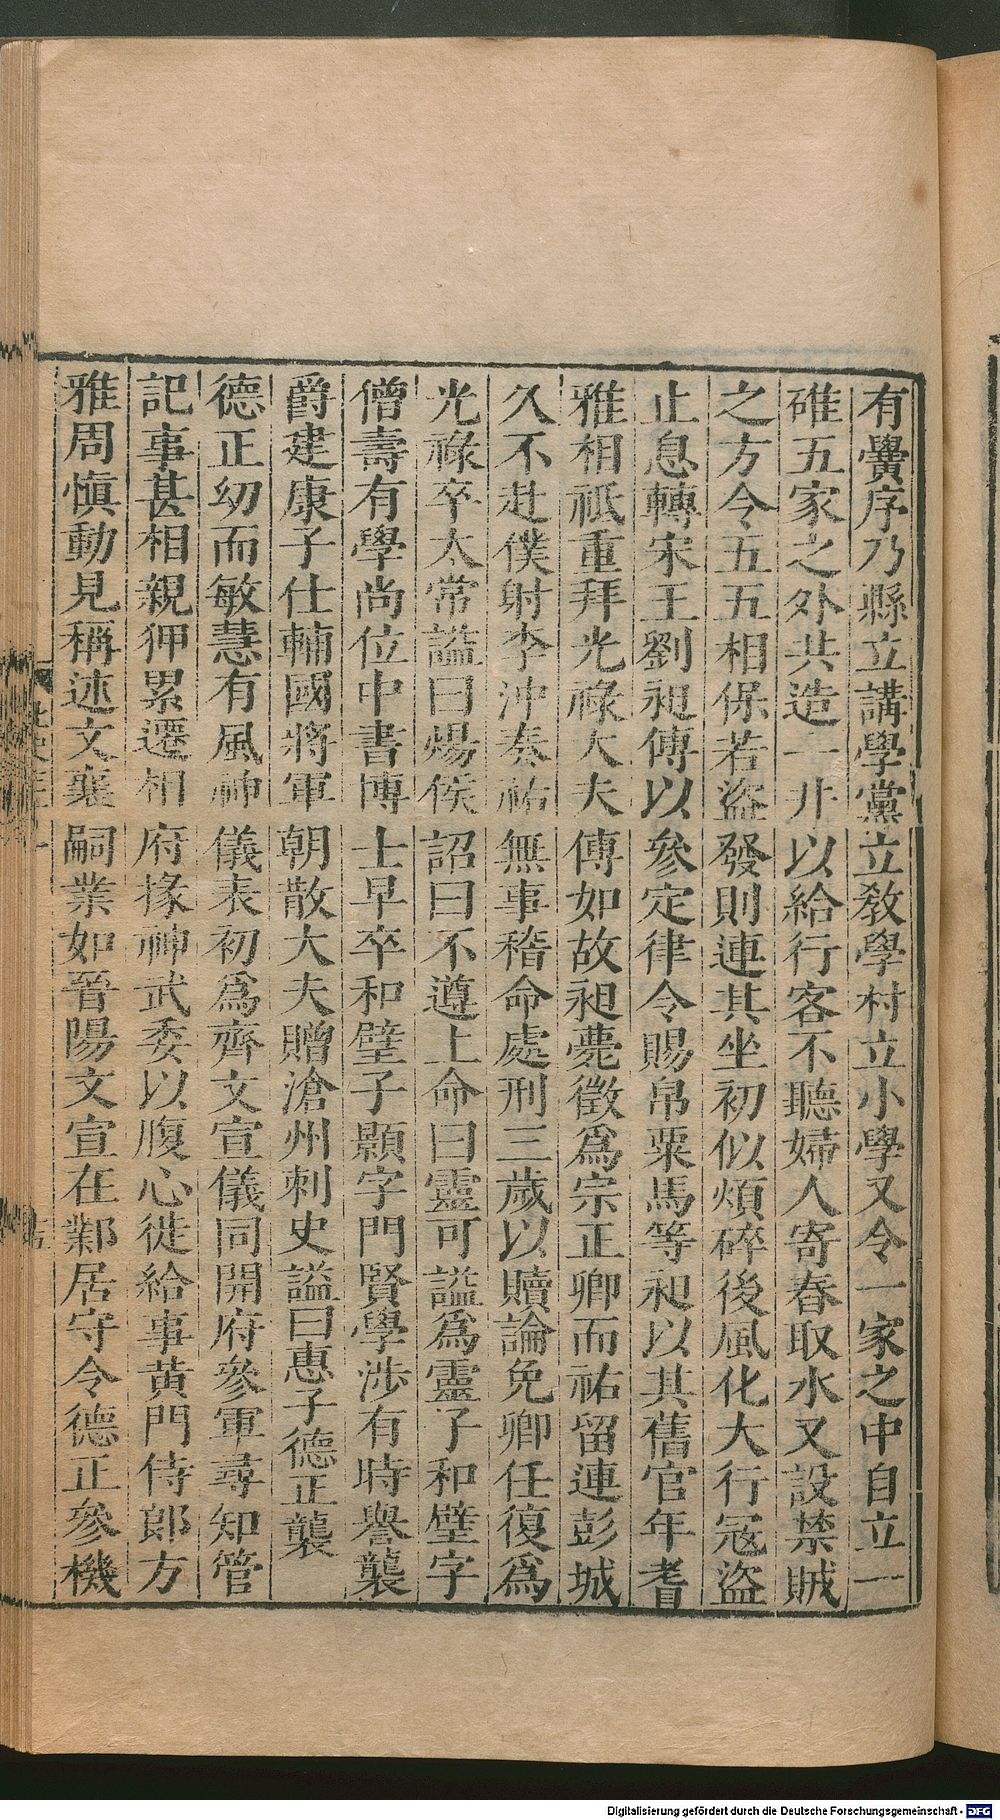 有黌序乃縣立講學黨立敎學村立小學又令一家之中自立一
碓五家之外共造一井以給行客不聽婦人寄舂取水又設禁賊
之方令五五相保若盜發則連其坐初似煩碎後風化大行冦盜
止息轉宋王劉昶傅以參定律令賜帛粟馬等昶以其舊官年耆
雅相祇重拜光祿大夫傅如故昶薨徵爲宗正卿而祐留連彭城
久不赴僕射李沖奏祐無事稽命處刑三歲以贖論免卿任復爲
光祿卒太常謚曰煬侯詔曰不遵上命曰靈可謚爲靈子和璧字
僧壽有學尚位中書博士早卒和璧子顥字門賢學涉有時譽襲
爵建康子仕輔國將軍朝散大夫贈滄州刺史謚曰惠子德正襲
德正幼而敏慧有風神儀表初爲齊文宣儀同開府參軍尋知管
記事甚相親狎累遷相府掾神武委以腹心徙給事黄門侍郎方
雅周愼動見稱述文襄嗣業如晉陽文宣在鄴居守令德正參機
Digitalisierung gefördert durch die Deutsche Forschungsgemeinschaft - DFG